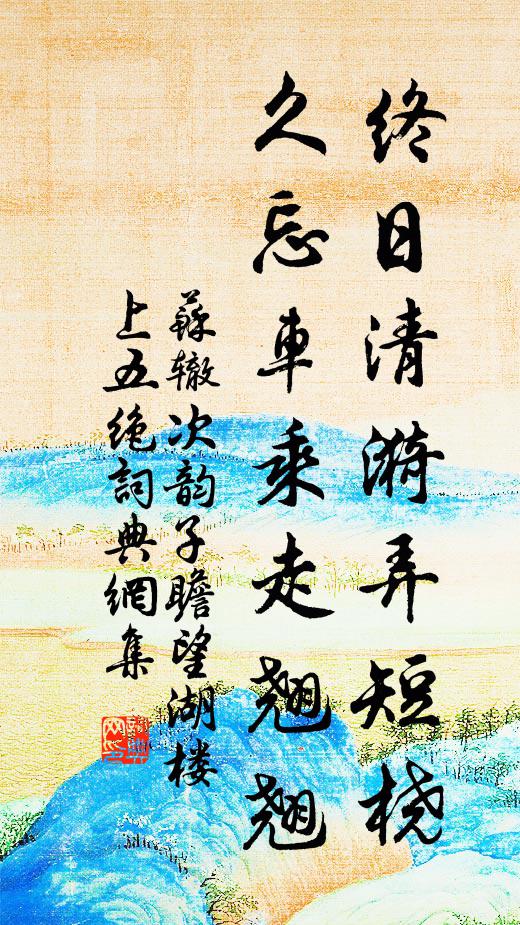 终日清漪弄短桡
久忘車乘走翘翘
蘇辙次韵子瞻望湖楼
上五绝詞典網集